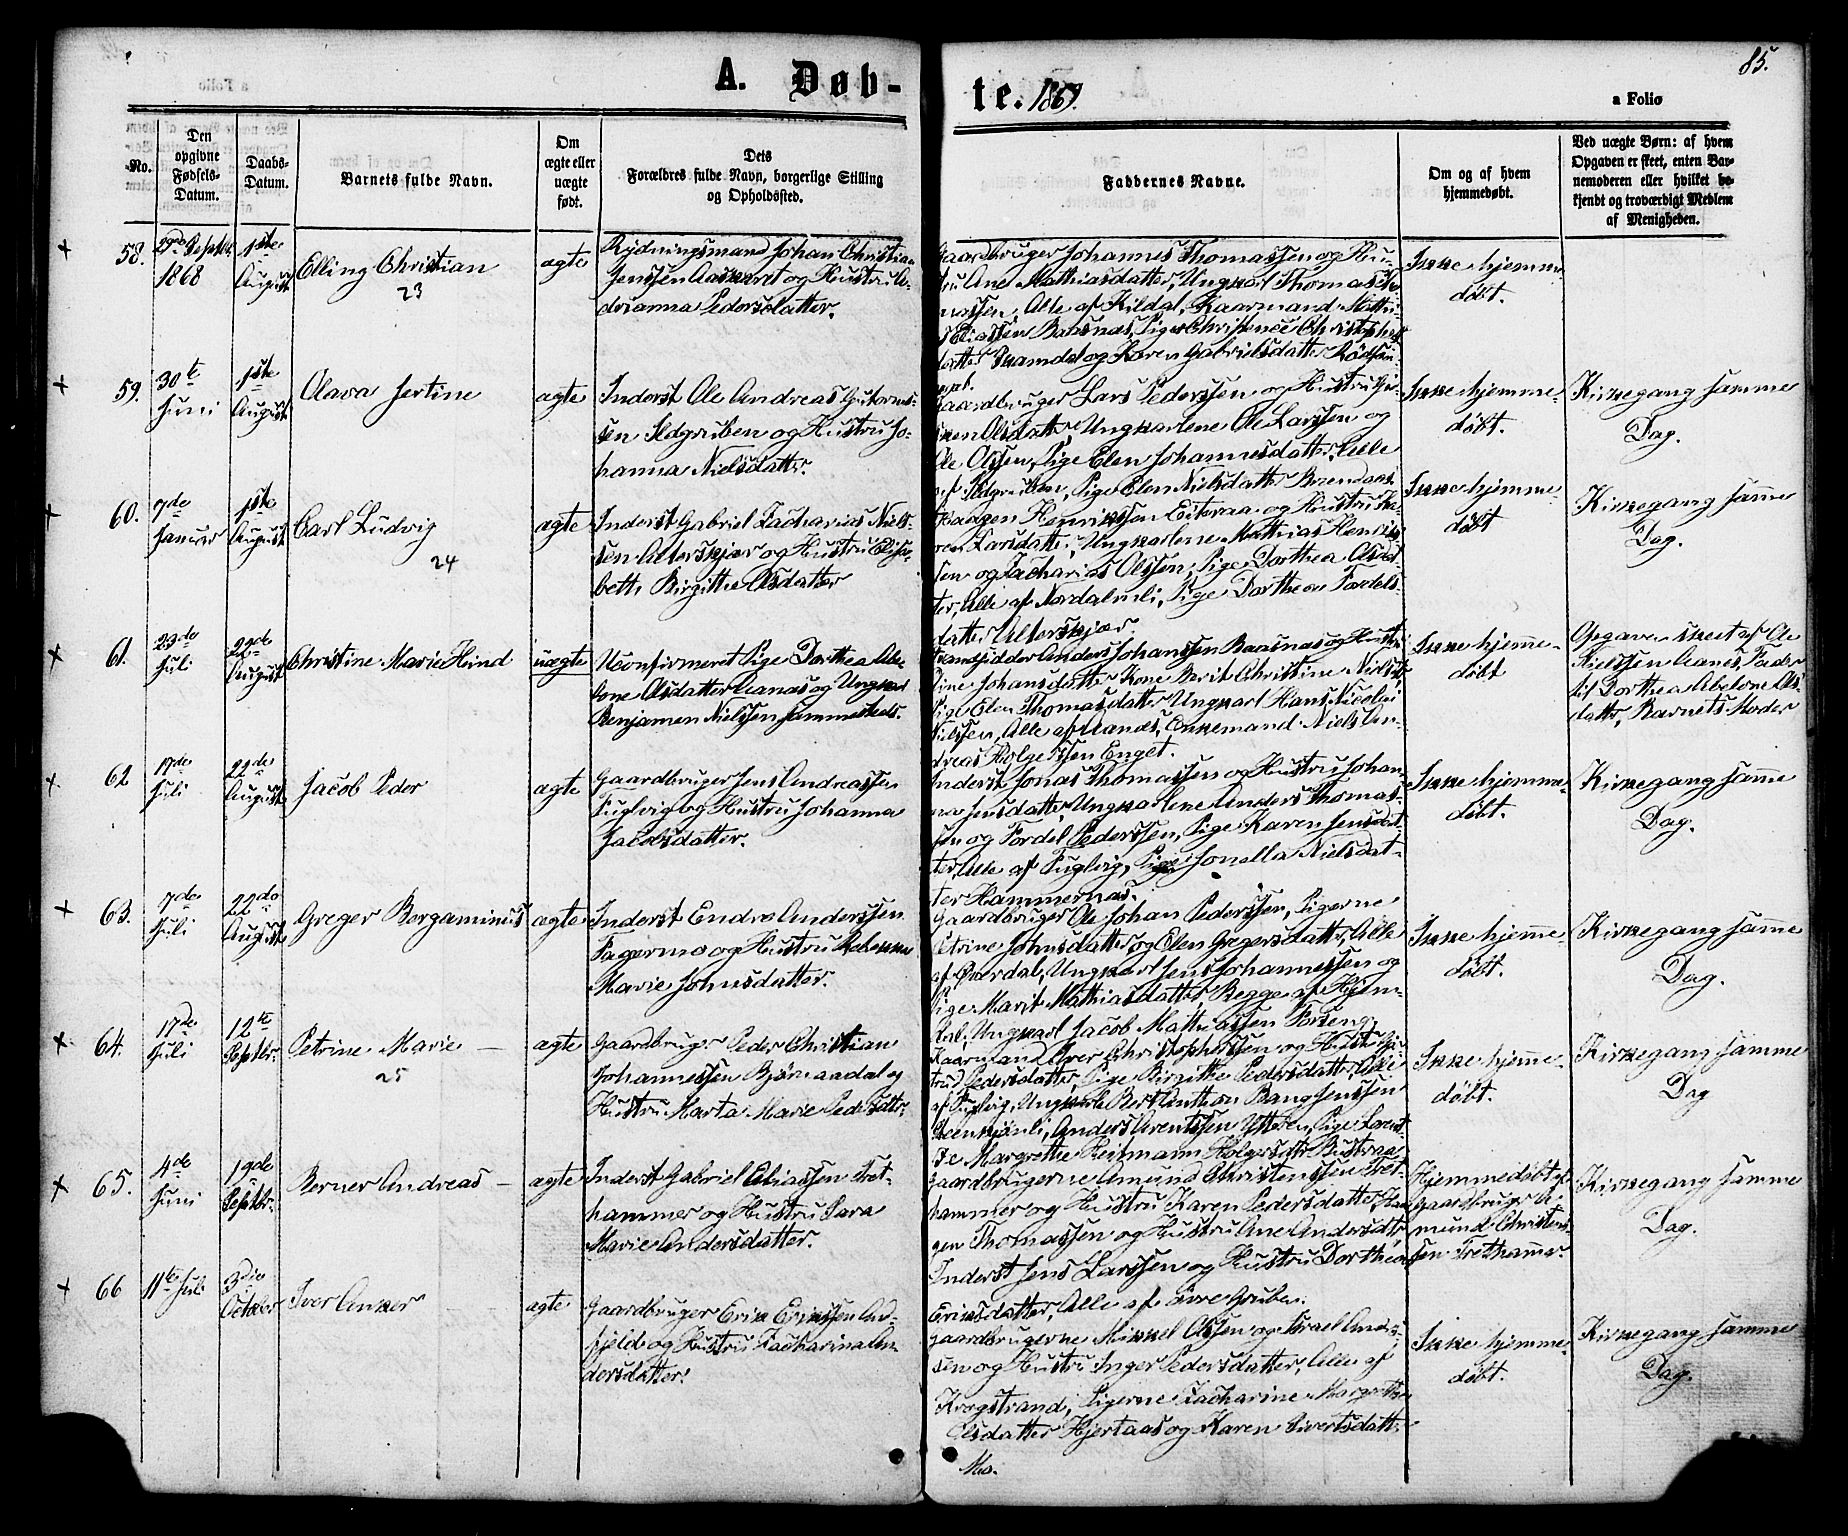 85.
A. Døb-
te. 1869.
a Folio
No.
Den
opgivne
Fødsels-
Datum.
Daabs-
Datum.
Barnets fulde Navn.
Om
ægte eller
uægte
født.
Dets
Forældres fulde Navn, borgerlige Stilling
og Opholdssted.
Faddernes Navne.
Om og af hvem
hjemmedøbt.
Ved uægte Børn: af hvem
Opgaven er skeet, enten Bar-
nemoderen eller hvilket be-
kjendt og troværdigt Medlem
af Menigheden.
58.
1868
1ste
August
Elling Christian
23
ægte
Rydningsmand Johan Christian
Jenssen og Hustru A-
drianna Pedersdatter.
Gaardbruger Johannes Thomassen og Hu-
stru Ane Mathiasdatter, Ungkarl Thomas Tho-
massen, Alle af Kildal, Kaarmand Mathi-
as Eliassen Baasnæs, Pigen Christence Christophers-
datter og Karen Gabrielsdatter
Ikke hjemme-
døbt.
59.
30te
Juni
1ste
August
Olava Jertine
ægte
Inderst Ole Andreas Gutorms-
sen Ildgruben og Hustru Jo-
hanna Nielsdatter.
Gaardbruger Lars Pederssen og Hustru
Olsdatter, Ungkarlene Ole Larssen og
Ole Olssen, Pige Elen Johannesdatter, Alle
af Ildgruben, Pige Elen Nielsdatter
Ikke hjemme-
døbt.
Kirkegang samme
Dag.
60.
7de
Januar
1ste
August
Carl Ludvig
24
ægte
Inderst Gabriel Zacharias Niels-
sen Alterskjær og Hustru Elisa-
beth Birgitte Olsdatter
Haagen Henrikssen Eiteraa og Hustru Ka-
ren Larsdatter, Ungkarlene Mathias Henriks-
sen og Zacharias Olssen, Pige Dorthea Olsdat-
ter, Alle af Nordalmli, Pige Dorthea Tordels-
datter Alterskjær
Ikke hjemme-
døbt
Kirkegang samme
Dag.
61.
23de
Juli
22de
August
Christine Marie Hind
uægte
Uconfirmeret Pige Dorthea Abe-
lone Olsdatter Aanæs og Ungkarl
Benjamin Nielssen sammesteds.
Strandsidder Anders Johanssen Baasnæs og Hustru
Johansdatter, Kone Berit Christine Nielsd.
Pige Elen Thomasdatter, Ungkarl Hans Nicolai
Nielssen, Alle af Aanæs, Enkemand Niels An-
dreas Holgerssen Enget.
Ikke hjemme-
døbt
Opgaven skeet af Ole
Nielssen Aanes, Fader
til Dorthea Abelone Ols-
datter, Barnets Moder
62
17de
Juli
22de
August
Jacob Peder
ægte
Gaardbruger Jens Andreassen
Fuglvig og Hustru Johanna
Jacobsdatter.
Inderst Jonas Thomassen og Hustru Johan-
na Jensdatter, Ungkarlene Anders Thomas-
sen og Tordel Pederssen, Pige Karen Jensdat-
ter, Alle af Fuglvig, Pige Jonella Nielsdat-
ter Hammernæs.
Ikke hjemme-
døbt.
Kirkegang samme
Dag.
63.
7de
Juli
22de
August
Greger Bergaminus
ægte
Inderst Endre Anderssen
Fagermo og Hustru Rebekka
Marie Johnsdatter.
Gaardbruger Ole Johan Pederssen, Pigerne
Petrine Johnsdatter og Elen Gregersdatter, Alle
af Ungkarl Jens Johannessen og
Pige Marit Mathiasdatter, Begge af Hjem-
dal, Ungkarl Jacob Mathiassen Forseng.
Ikke hjemme-
døbt.
Kirkegang samme
Dag.
64.
17de
Juli
12te
Septbr.
Petrine Marie
25
ægte
Gaardbruger Peder Christian
Johannessen Bjørnaadal og
Hustru Marta Marie Pedersdtr.
Kaarmand Iver Christopherssen og Hustru
Pedersdatter, Pige Birgithe Pedersdatter, Alle
af Fuglvig, Ungkarle Bert Anthon Bangjenssen
Anders Arentssen Ytteren, Pige
Margrethe Reitmann
Ikke hjemme-
døbt.
Kirkegang samme
Dag
65.
4de
Juni
19de
Septbr.
Berner Andreas
ægte
Inderst Gabriel Eliassen Tret-
hammer og Hustru Sara
Marie Andersdatter.
Gaardbrugerne Amund Christenssen Tret-
hammer og Hustru Karen Pedersdatter, Haa-
gen Thomassen og Hustru Ane Andersdtr
Inderst Jens Larssen og Hustru Dorthea
Eriksdatter, Alle af Gruben.
Hjemmedøbt af
Gaardbruger A-
mund Christens-
sen Trethamer.
Kirkegang samme
Dag.
66
11te Juli
3die
October
Iver Anker
ægte
Gaardbruger Erik Erikssen And-
fjeld og Hustru Zacharina An-
dersdatter.
Gaardbrugerne Mikkel Olssen og Israel Anders-
sen og Hustru Inger Pedersdatter, Alle af
Krogstrand, Pigerne Zacharine Margrethe
Olsdatter Hjertaas og Karen Sivertsdatt.
Mo.
Ikke hjemme-
døbt.
Kirkegang samme
Dag.